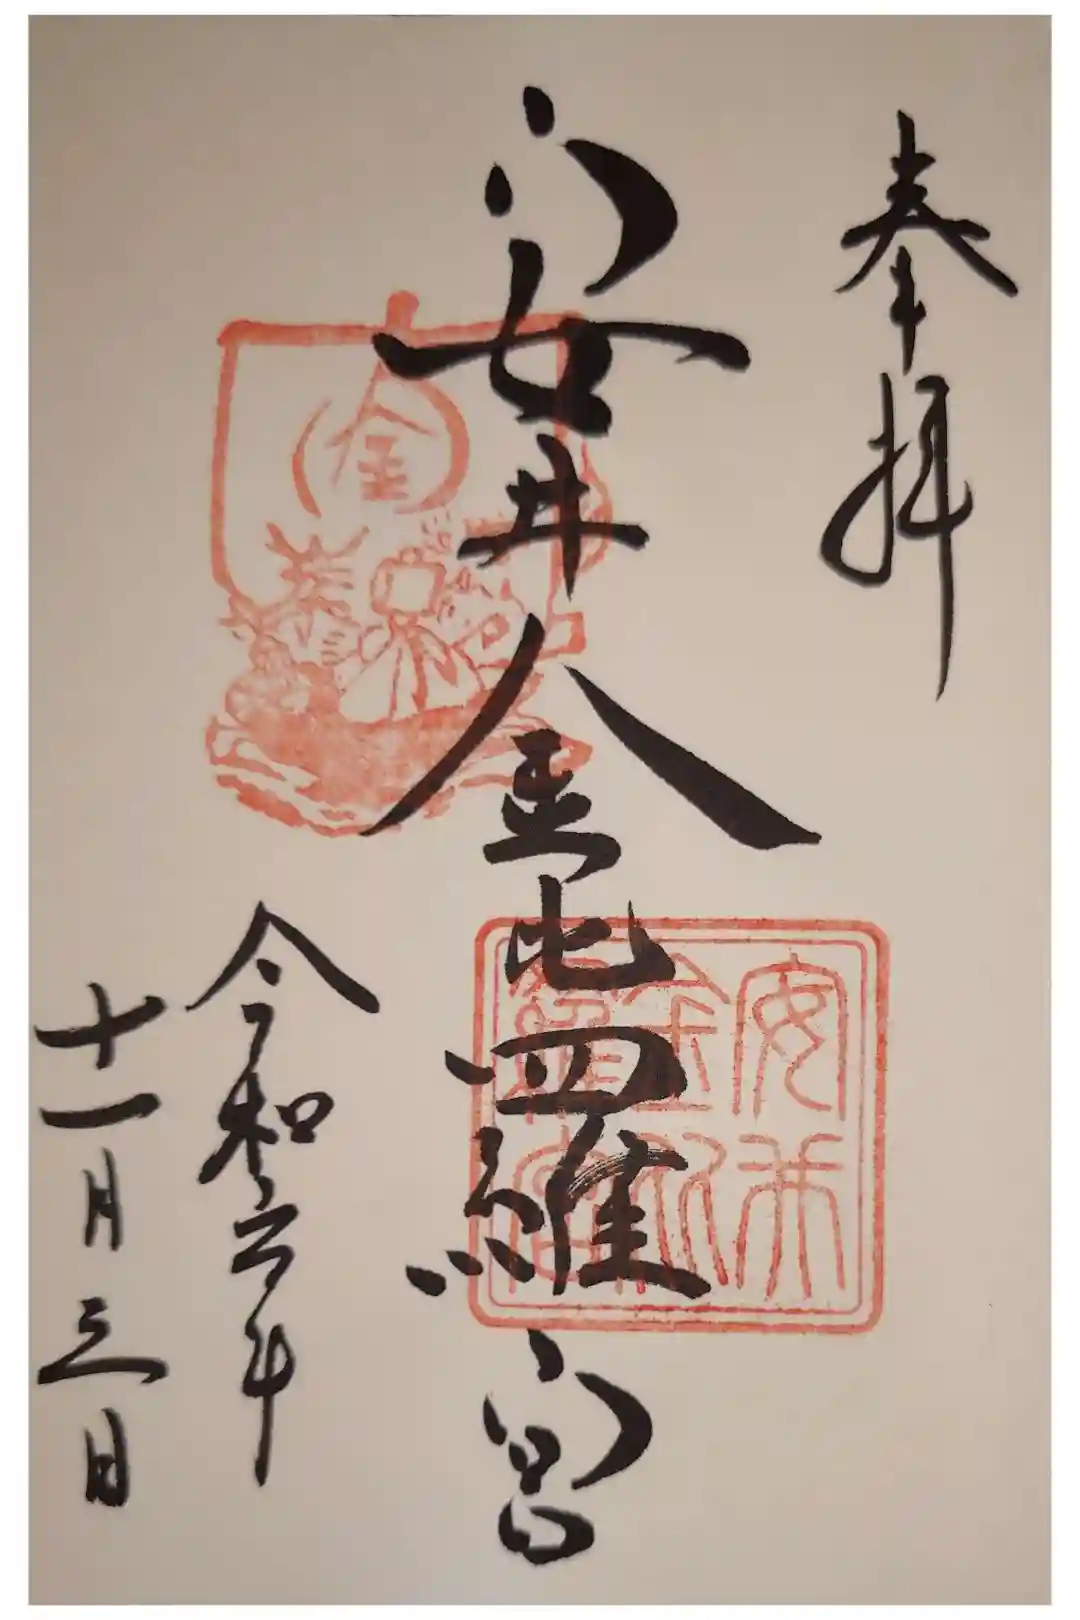 奉拝
安井金比羅宮
令和六年
十一月三日
金
安井
金比
羅宮